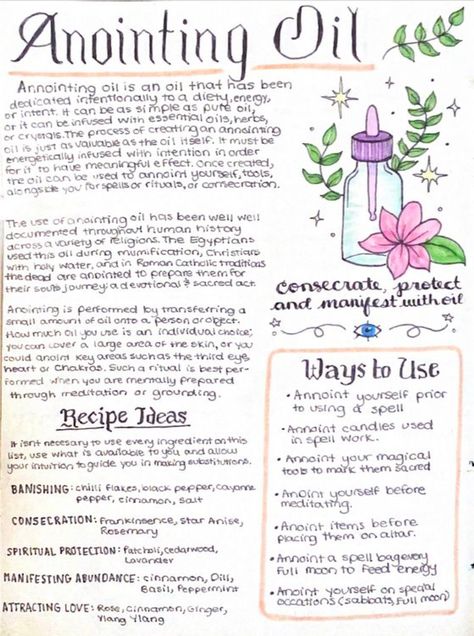 Anointing Oil
Annointing oil is an oil that has been
dedicated intentionally to a diety, energy,
or intent. It can be as simple as pure oil,
or it can be infused with essential oils, herbs,
or crystals. The process of creating an annointing
oil is just as valuable as the oil itself. It must be
energetically infused with intention in order
for it to have meaningful effect. Once created,
the oil can be used to annoint yourself, tools,
alongside you for spells or rituals, or consecration.
The use of anointing oil has been well well
documented throughout human history
across a variety of religions. The Egyptians
used this oil during mumification, Christians
with holy water, and in Roman Catholic traditions
the dead are anointed to prepare them for
their souls journey: a devotional & sacred act.
Anointing is performed by transferring a
small amount of oil onto a person or object.
How much oil you use is an individual choice;
you can cover a large area of the skin, or you
could anoint key areas such as the third eye,
heart or Chakras. Such a ritual is best per-
formed when you are mentally prepared
through meditation or grounding.
Recipe Ideas
It isnt necessary to use every ingredient on this
list, use what is available to you and allow
your intuition to guide you in making substitutions.
BANISHING: chili flakes, black pepper, cayenne
pepper, cinnamon, salt
CONSECRATION: Frankinsence, Star Anise,
Rosemary
SPIRITUAL PROTECTION: Patchouli, cedarwood,
Lavander
MANIFESTING ABUNDANCE: cinnamon, Dill,
Basil, Peppermint
ATTRACTING LOVE: Rose, Cinnamon, Ginger,
Ylang Ylang
consecrate, protect
and manifest with oil
Ways to Use
• Annoint yourself prior
to using a spell
• Annoint candles used
in spell work.
• Annoint your magical
tools to mark them sacred
• Anoint yourself before
meditating.
• Anoint items before
placing them on altar.
• Annoint a spell bag every
full moon to feed energy
• Anoint yourself on special
occations (sabbats, full moon)